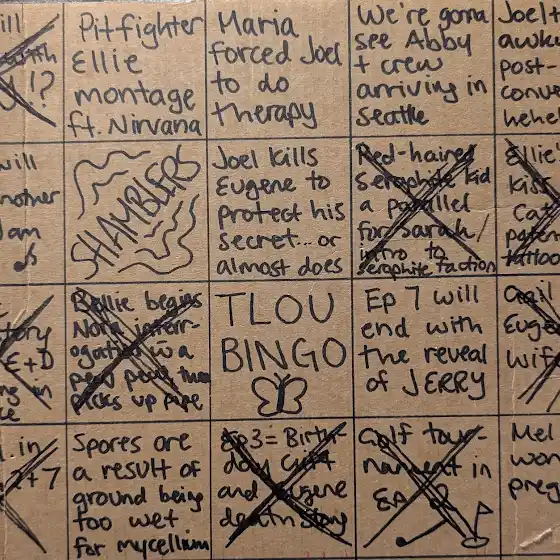 ill
!?
Pitfighter
Ellie
montage
ft. Nirvana
Maria
forced Joel
to do
therapy
We're gonna
see Abby
+ crew
arriving in
Seattle
Joel+
awkw
post-
conve
hehe
will
nother
am
SHAMBLERS
Joel kills
Eugene to
protect his
secret... or
almost does
Red-haired
Seraphite kid
a parallel
for Sarah/
intro to
seraphite faction
Ellie's
kiss
Cat
paten
tattoo
tory
E+D
ng in
ce
Ellie begins
Nora interr-
ogation w a
picks up pipe
TLOU
BINGO
Ep 7 will
end with
the reveal
of JERRY
Gail
Euge
wife
. in
2+7
Spores are
a result of
ground being
too wet
for mycellium
Ep3 = Birth-
day Gift
and Eugene
death story
Golf tour-
nament in
Ep 2
Mel
won
preg